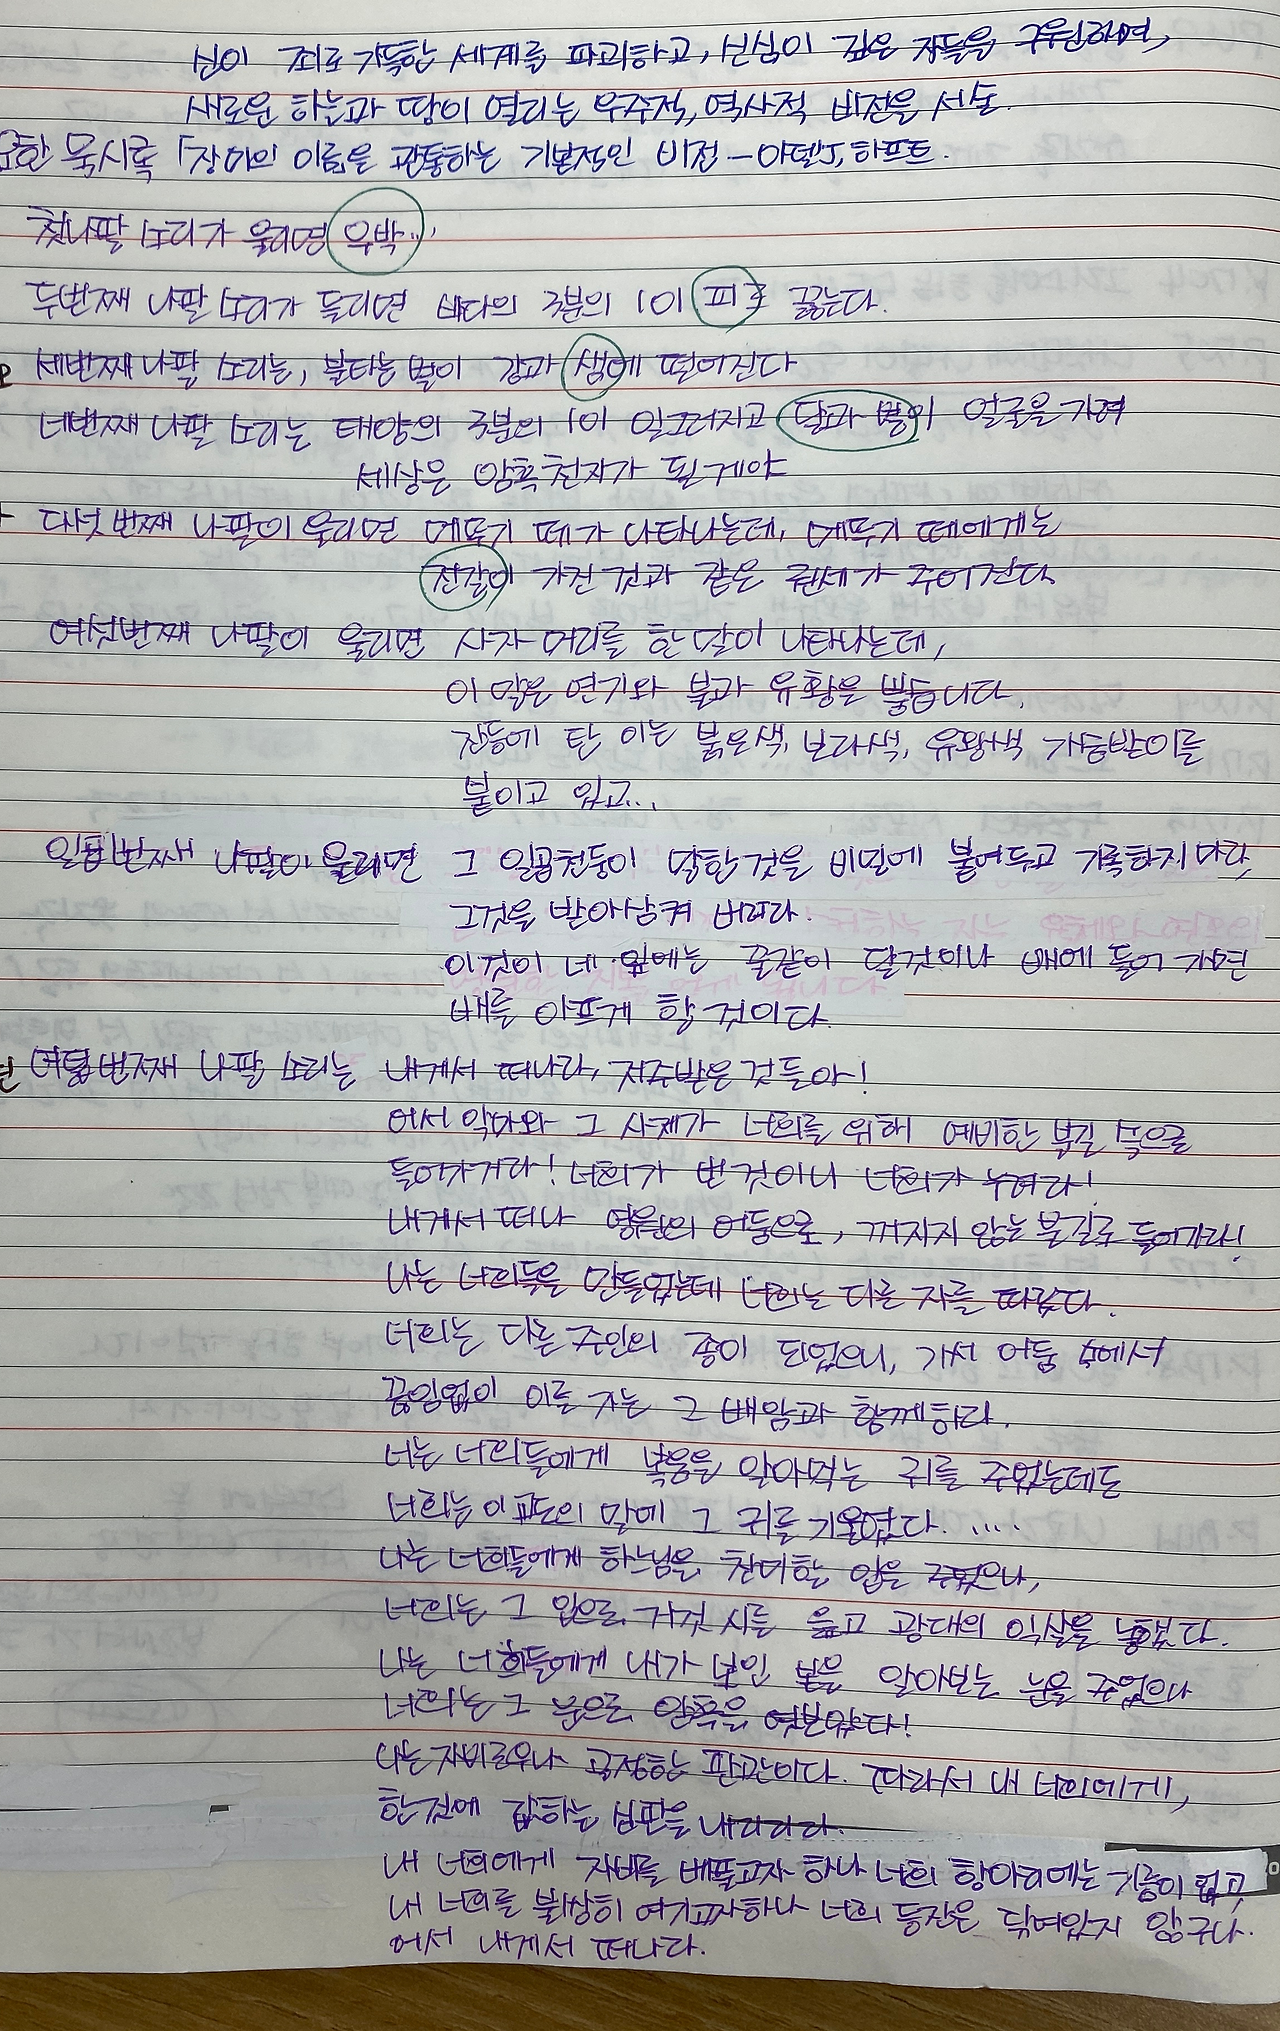 신이 죄로 가득한 세계를 파괴하고, 신심이 깊은 자들을 구원하며,
새로운 하늘과 땅이 열리는 우주적, 역사적 비전을 서술.
요한 묵시록 「장미의 이름을 관통하는 기본적인 비전 - 아델 J. 하프트.
첫나팔 소리가 울리면 우박...
두번째 나팔 소리가 들리면 바다의 3분의 1이 피로 끓는다.
세번째 나팔 소리는, 불타는 별이 강과 샘에 떨어진다
네번째 나팔 소리는 태양의 3분의 1이 일그러지고 달과 별이 얼굴을 가려
세상은 암흑천지가 될게야
다섯 번째 나팔이 울리면 메뚜기 떼가 나타나는데, 메뚜기 떼에게는
전갈이 가진 것과 같은 권세가 주어진다
여섯번째 나팔이 울리면 사자 머리를 한 말이 나타나는데,
이 말은 연기와 불과 유황을 뿜습니다.
잔등에 탄 이는 붉은색, 보라색, 유황색 가슴받이를
붙이고 있고..
일곱번째 나팔이 울리면 그 일곱천둥이 말한것을 비밀에 붙여두고 기록하지 마라,
그것을 받아삼켜 버리라.
이것이 네 입에는 꿀같이 달것이나 배에 들어 가면
배를 아프게 할 것이다.
여덟번째 나팔 소리는 내게서 떠나라, 저주받은 것들아!
어서 악마와 그 사제가 너희를 위해 예비한 불길 속으로
들어가거라! 너희가 번 것이니 너희가 누려라!
내게서 떠나 영원의 어둠으로, 꺼지지 않는 불길로 들어가라!
나는 너희들을 만들었는데 너희는 다른 자를 따랐다.
너희는 다른 주인의 종이 되었으니, 가서 어둠 속에서
끊임없이 이를 가는 그 배암과 함께하라.
너는 너희들에게 복음을 알아먹는 귀를 주었는데도
너희는 이교도의 말에 그 귀를 기울였다. ....
나는 너희들에게 하느님을 찬미할 입을 주었으나,
너희는 그 입으로 거짓 시를 읊고 광대의 익살을 농했다.
나는 너희들에게 내가 보인 빛을 알아보는 눈을 주었으나
너희는 그 눈으로 암흑을 엿보았다!
나는 자비로우나 공정한 판관이다. 따라서 내 너희에게,
한 것에 답하는 심판을 내리리라.
내 너희에게 자비를 베풀고자 하나 너희 항아리에는 기름이 없고,
내 너희를 불쌍히 여기고자하나 너희 등잔은 닦여있지 않구나.
어서 내게서 떠나라.